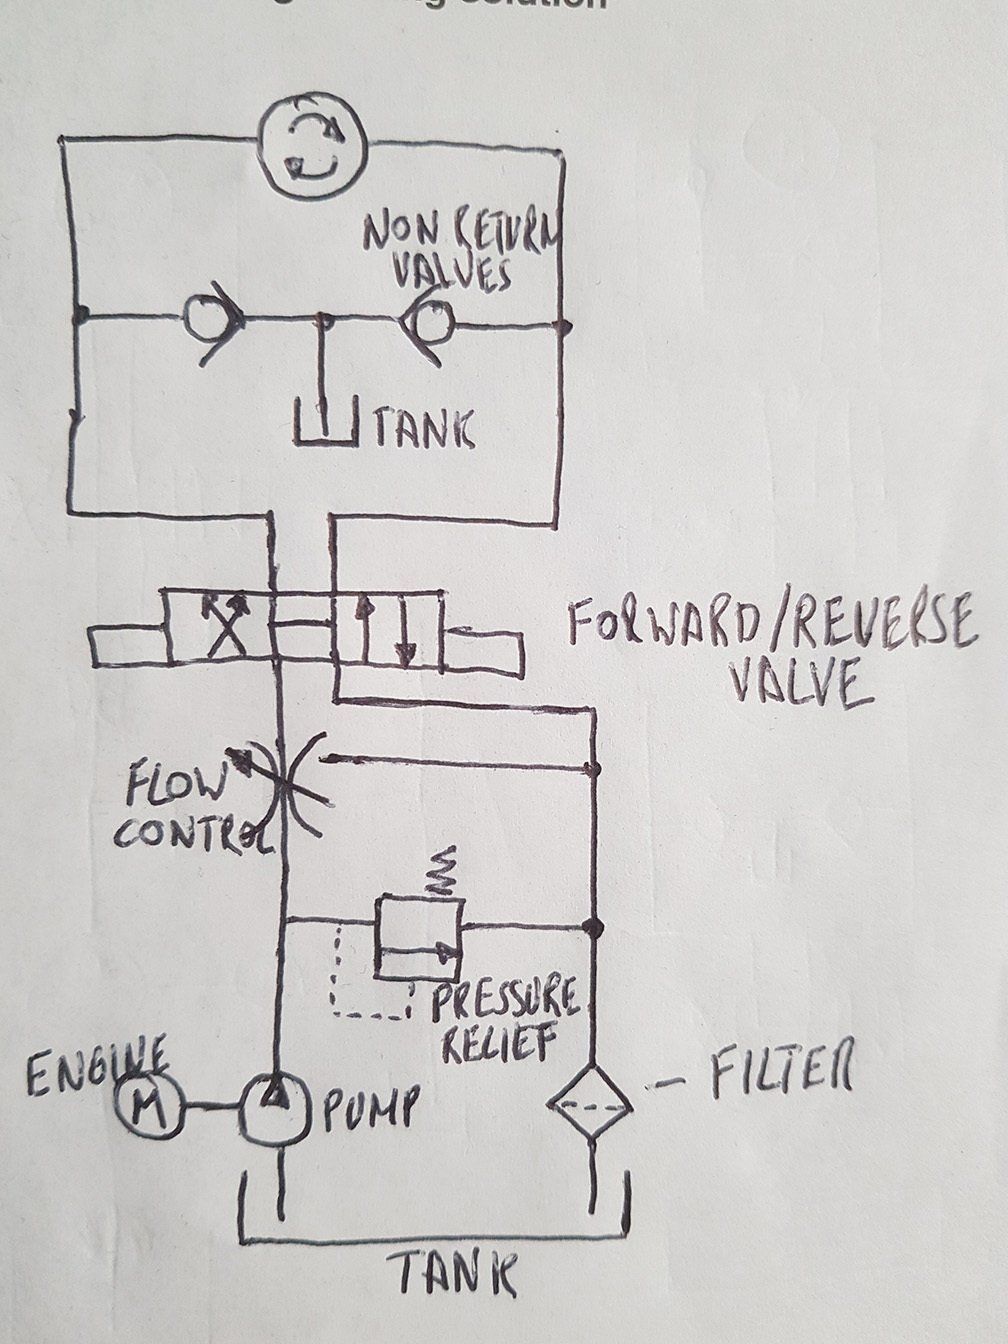 solution
NON RETURN
VALVES
TANK
FORWARD/REVERSE
VALVE
FLOW
CONTROL
PRESSURE
RELIEF
ENGINE
M
PUMP
FILTER
TANK